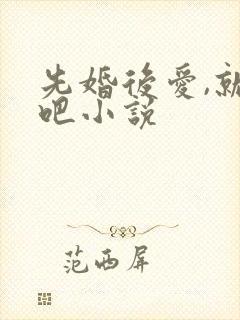 先婚後愛,就
吧小說
范西屏